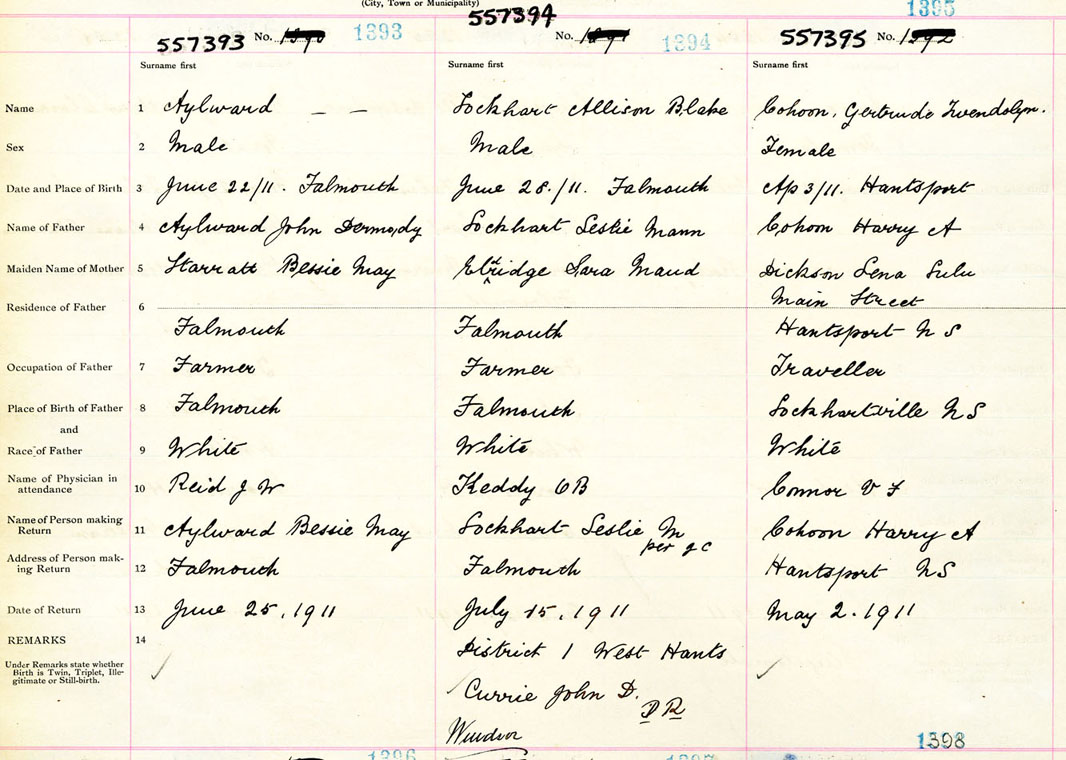 (City, Town or Municipality)
1395
557393 No. 1393
557394
No. 1394
557395 No.
Surname first Surname first Surname first
Name 1 Aylward — — Lockhart Allison Blake Cohoon, Gertrude Gwendolyn.
Sex 2 Male Male Female
Date and Place of Birth 3 June 22/11. Falmouth June 28./11. Falmouth Ap 3/11. Hantsport
Name of Father 4 Aylward John Dermody Lockhart Leslie Mann Cohoon Harry A
Maiden Name of Mother 5 Starratt Bessie May Elridge Sara Maud Dickson Lena Lulu
Residence of Father 6 Main Street
Falmouth Falmouth Hantsport N S
Occupation of Father 7 Farmer Farmer Traveller
Place of Birth of Father 8 Falmouth Falmouth Lockhartville N S
and
Race of Father 9 White White White
Name of Physician in
attendance 10 Reid J W Keddy O B Connor V F
Name of Person making
Return 11 Aylward Bessie May Lockhart Leslie M Cohoon Harry A
per g c
Address of Person mak-
ing Return 12 Falmouth Falmouth Hantsport N S
Date of Return 13 June 25, 1911 July 15, 1911 May 2. 1911
REMARKS 14
District 1 West Hants
Under Remarks state whether
Birth is Twin, Triplet, Ille-
gitimate or Still-birth.
Currie John D.
D R
Windsor
1398
1396 1397